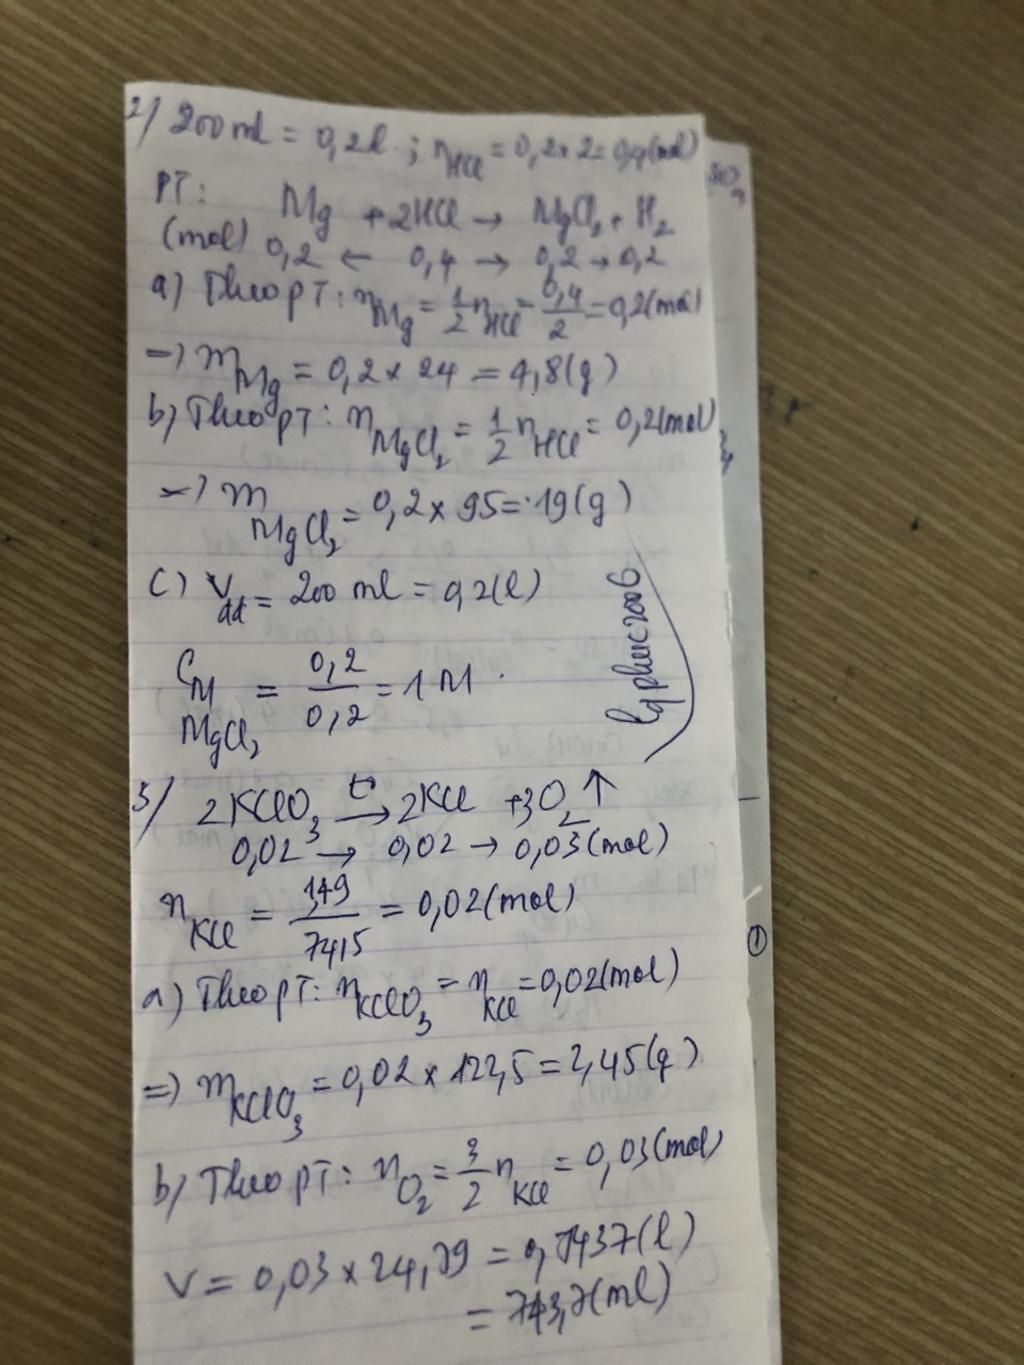 2/ 200 ml = 0,2l ; nHCl = 0,2 x 2 = 0,4(mol)
PT: Mg + 2HCl → MgCl2 + H2
(mol) 0,2 ← 0,4 → 0,2 → 0,2
a) Theo PT: nMg = 1/2 nHCl = 0,4/2 = 0,2(mol)
=) mMg = 0,2 x 24 = 4,8(g)
b) Theo PT: nMgCl2 = 1/2 nHCl = 0,2(mol)
=) mMgCl2 = 0,2 x 95 = 19(g)
c) Vdd = 200 ml = 0,2(l)
CM MgCl2 = 0,2/0,2 = 1M.
lqphuc2006
3/ 2KClO3 t° → 2KCl + 3O2 ↑
0,02 → 0,02 → 0,03(mol)
nKCl = 1,49/74,5 = 0,02(mol)
a) Theo PT: nKClO3 = nKCl = 0,02(mol)
=) mKClO3 = 0,02 x 122,5 = 2,45(g)
b) Theo PT: nO2 = 3/2 nKCl = 0,03(mol)
V = 0,03 x 24,79 = 0,7437(l)
= 743,7(ml)
①